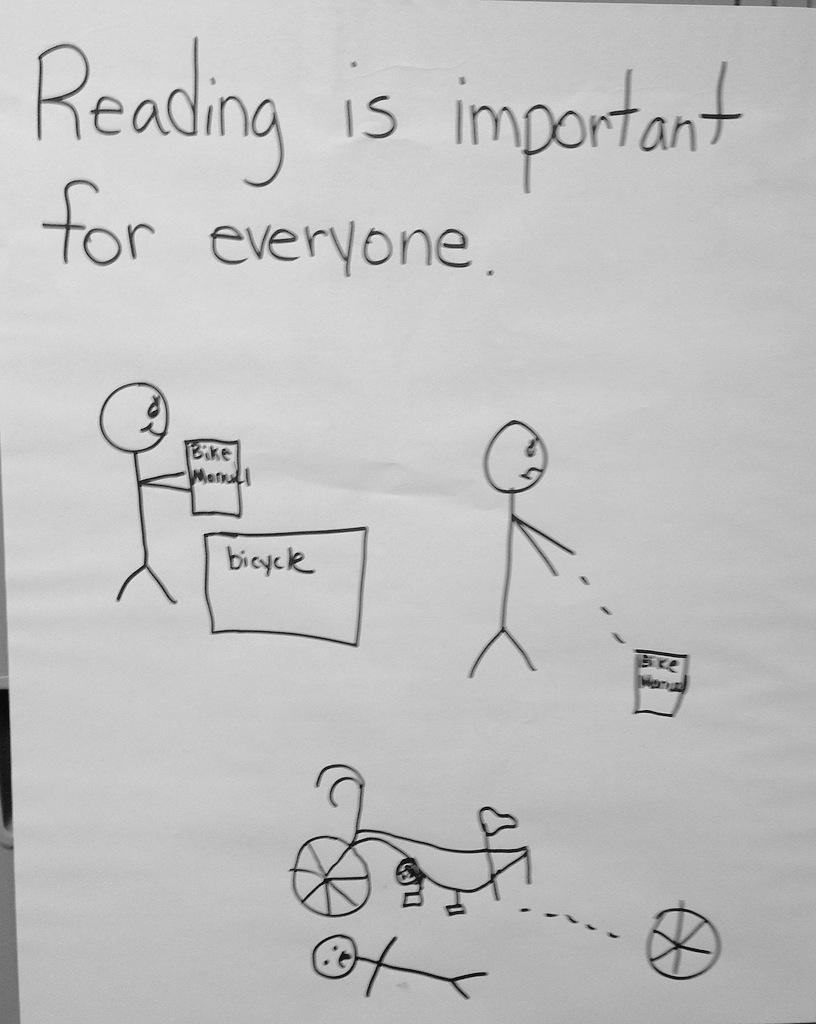 Reading is important
for everyone.
Bike
Manual
bicycle
Bike
Manual